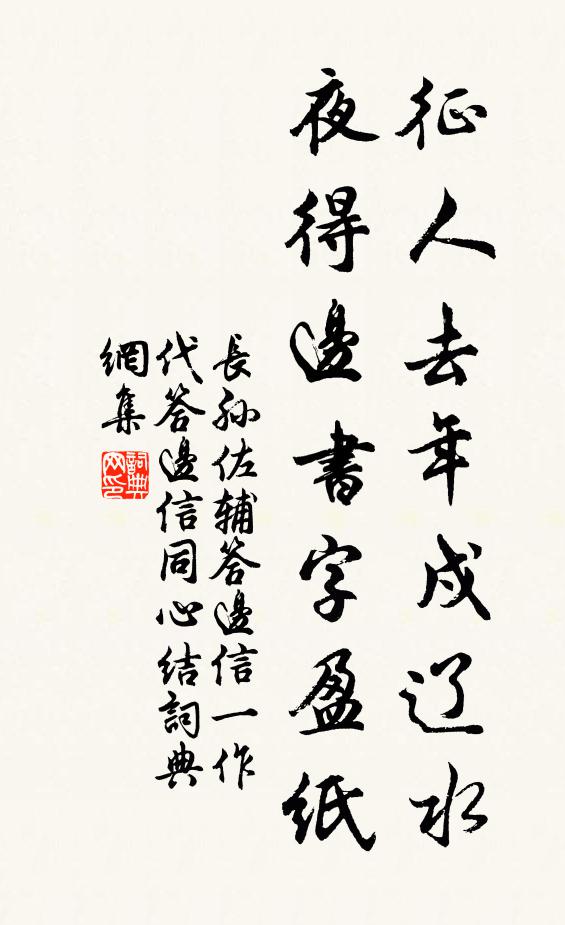 征人去年戍辽水
夜得邊書字盈紙
長孙佐辅答邊信一作
代答邊信同心结詞典
網集
詞典
网印